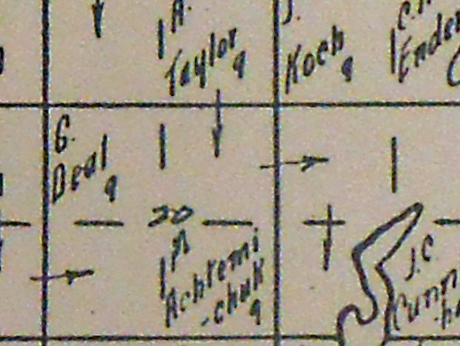 A.
Taylor
9
J.
Koch
9
Ender
G.
Deal
9
20
M
Achtemi
-chuk
9
J.C.
Cunn